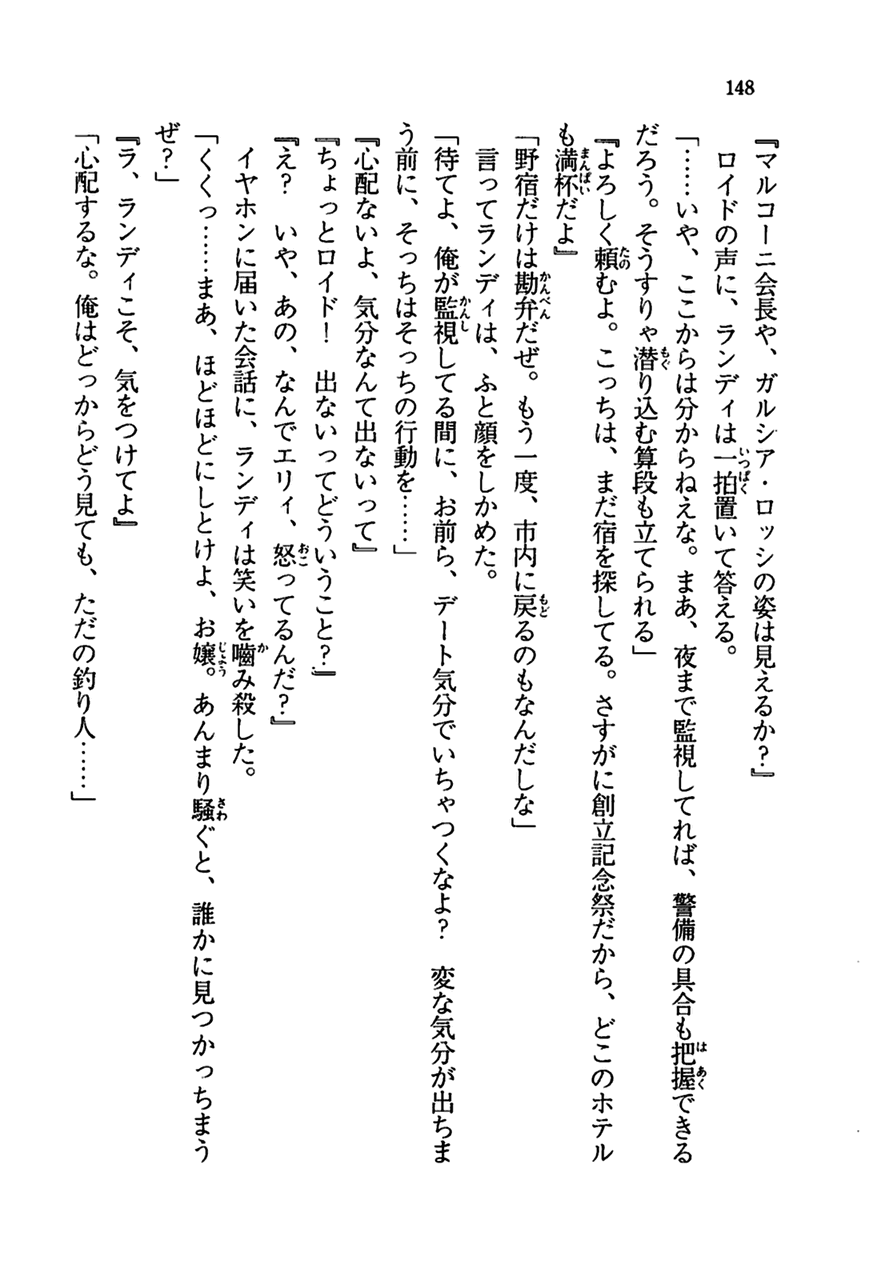 148
『マルコーニ会長や、ガルシア・ロッシの姿は見えるか？』
　ロイドの声に、ランディは一拍置いて答える。
「……いや、ここからは分からねえな。まあ、夜まで監視してれば、警備の具合も把握できる
だろう。そうすりゃ潜り込む算段も立てられる」
『よろしく頼むよ。こっちは、まだ宿を探してる。さすがに創立記念祭だから、どこのホテル
も満杯だよ』
「野宿だけは勘弁だぜ。もう一度、市内に戻るのもなんだしな」
　言ってランディは、ふと顔をしかめた。
「待てよ、俺が監視してる間に、お前ら、デート気分でいちゃつくなよ？　変な気分が出ちま
う前に、そっちはそっちの行動を……」
『心配ないよ、気分なんて出ないって』
『ちょっとロイド！　出ないってどういうこと？』
『え？　いや、あの、なんでエリィ、怒ってるんだ？』
　イヤホンに届いた会話に、ランディは笑いを嚙み殺した。
「くくっ……まあ、ほどほどにしとけよ、お嬢。あんまり騒ぐと、誰かに見つかっちまう
ぜ？」
『ラ、ランディこそ、気をつけてよ』
「心配するな。俺はどっからどう見ても、ただの釣り人……」